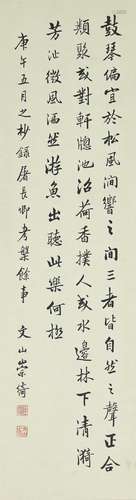 鼓琴偏宜於松風澗響之間三者皆自然之聲正合
類聚或對軒牕池沼荷香撲人或水邊林下清漪
芳沚微風洒然游魚出聽此樂何極
庚午五月之杪錄屠長卿考槃餘事 文山崇綺